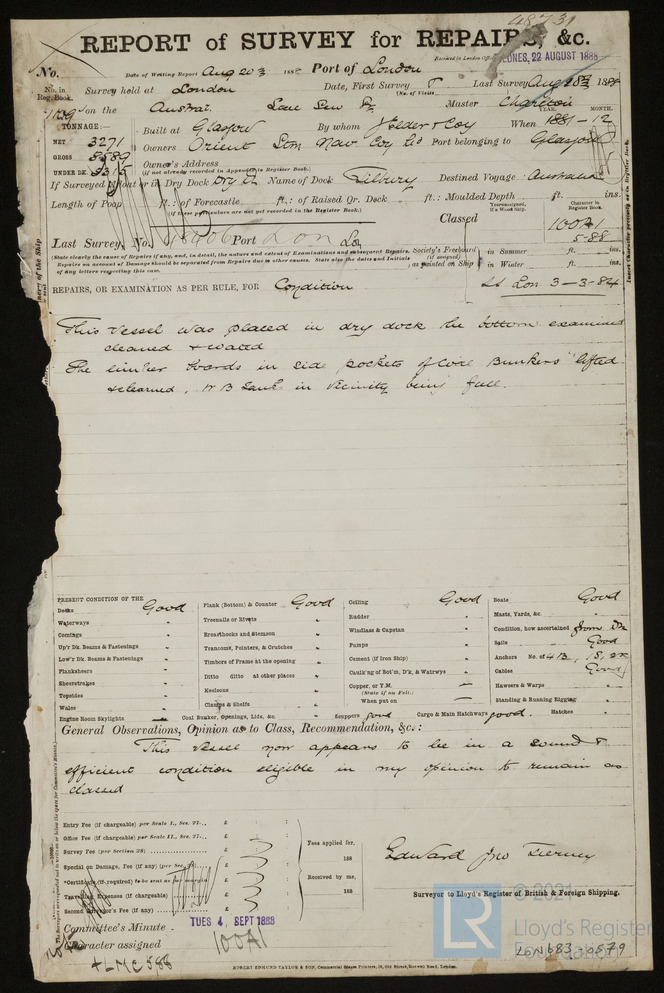 48731
REPORT of SURVEY for REPAIRS, &c.
Received in London Office WEDNES, 22 AUGUST 1888
No. Date of Writing Report Aug 20 188 Port of London
No. in Reg. Book. Survey held at London Date, First Survey Last Survey Aug 188
(No. of Visits
on the Austral Master
TONNAGE:—
Built at Glasgow By whom J Elder & Coy When 1881-12
YEAR. MONTH.
NET 3271 Owners Orient Stm Nav Coy Ld Port belonging to Glasgow
GROSS 5589 Owner's Address
(if not already recorded in Appendix to Register Book.)
UNDER DK.
If Surveyed Afloat or in Dry Dock Dry Dk Name of Dock Tilbury Destined Voyage Australia
Length of Poop ft.: of Forecastle ft.: of Raised Qr. Deck ft.: Moulded Depth ft. ins.
(if these particulars are not yet recorded in the Register Book.)
Character in Register Book.
Classed 100A1
5-88
Last Survey, No. Port Lon
(State clearly the cause of Repairs, if any, and, in detail, the nature and extent of Examinations and subsequent Repairs. Repairs on account of Damage should be separated from Repairs due to other causes. State also the dates and Initials of any letters respecting this case.
Society's Freeboard (if assigned) as painted on Ship in Summer ft. ins.
in Winter ft. ins.
REPAIRS, OR EXAMINATION AS PER RULE, FOR Condition
Lon 3-3-84
This vessel was placed in dry dock the bottom examined
cleaned & coated
The limber boards in side pockets of Coal Bunkers lifted
& cleaned, W B Tank in vicinity being full.
PRESENT CONDITION OF THE
Decks Good Plank (Bottom) & Counter Good Ceiling Good Boats Good
Waterways " Treenails or Rivets " Rudder " Masts, Yards, &c. "
Comings " Breasthooks and Stemson " Windlass & Capstan " Condition, how ascertained from Dk
Up'r Dk. Beams & Fastenings " Transoms, Pointers, & Crutches " Pumps " Sails Good
Low'r Dk. Beams & Fastenings " Timbers of Frame at the opening " Cement (if Iron Ship) " Anchors No. of 4B, 1S, 2K
Planksheers " Ditto ditto at other places " Caulk'ng of Bot'm, D'k, & Watrwys " Cables Good
Sheerstrakes " Keelsons " Copper, or Y.M. — Hawsers & Warps "
(State if on Felt.)
Topsides " Clamps & Shelfs " When put on — Standing & Running Rigging "
Wales "
Engine Room Skylights Coal Bunker, Openings, Lids, &c. " Scuppers good Cargo & Main Hatchways good Hatches "
General Observations, Opinion as to Class, Recommendation, &c.:
This vessel now appears to be in a sound &
efficient condition eligible in my opinion to remain as
classed
Entry Fee (if chargeable) per Scale I., Sec. 27... £ : :
Office Fee (if chargeable) per Scale II., Sec. 27... £ : :
Survey Fee (per Section 28) £ : :
Special on Damage, Fee (if any) (per Sec. £
*Certificate (if required) to be sent as £
Travelling Expenses (if chargeable) £
Second Surveyor's Fee (if any) £
Fees applied for,
188
Received by me,
188
Edward Jno Tierney
Surveyor to Lloyd's Register of British & Foreign Shipping.
TUES 4, SEPT 1888
Committee's Minute
Character assigned 100A1
+LMC 5,88
ROBERT EDMUND TAYLOR & SON, Commercial Steam Printers, 19, Old Street, Goswell Road, London.
LR
© 2021
Lloyd's Register
Foundation
LON683-0879